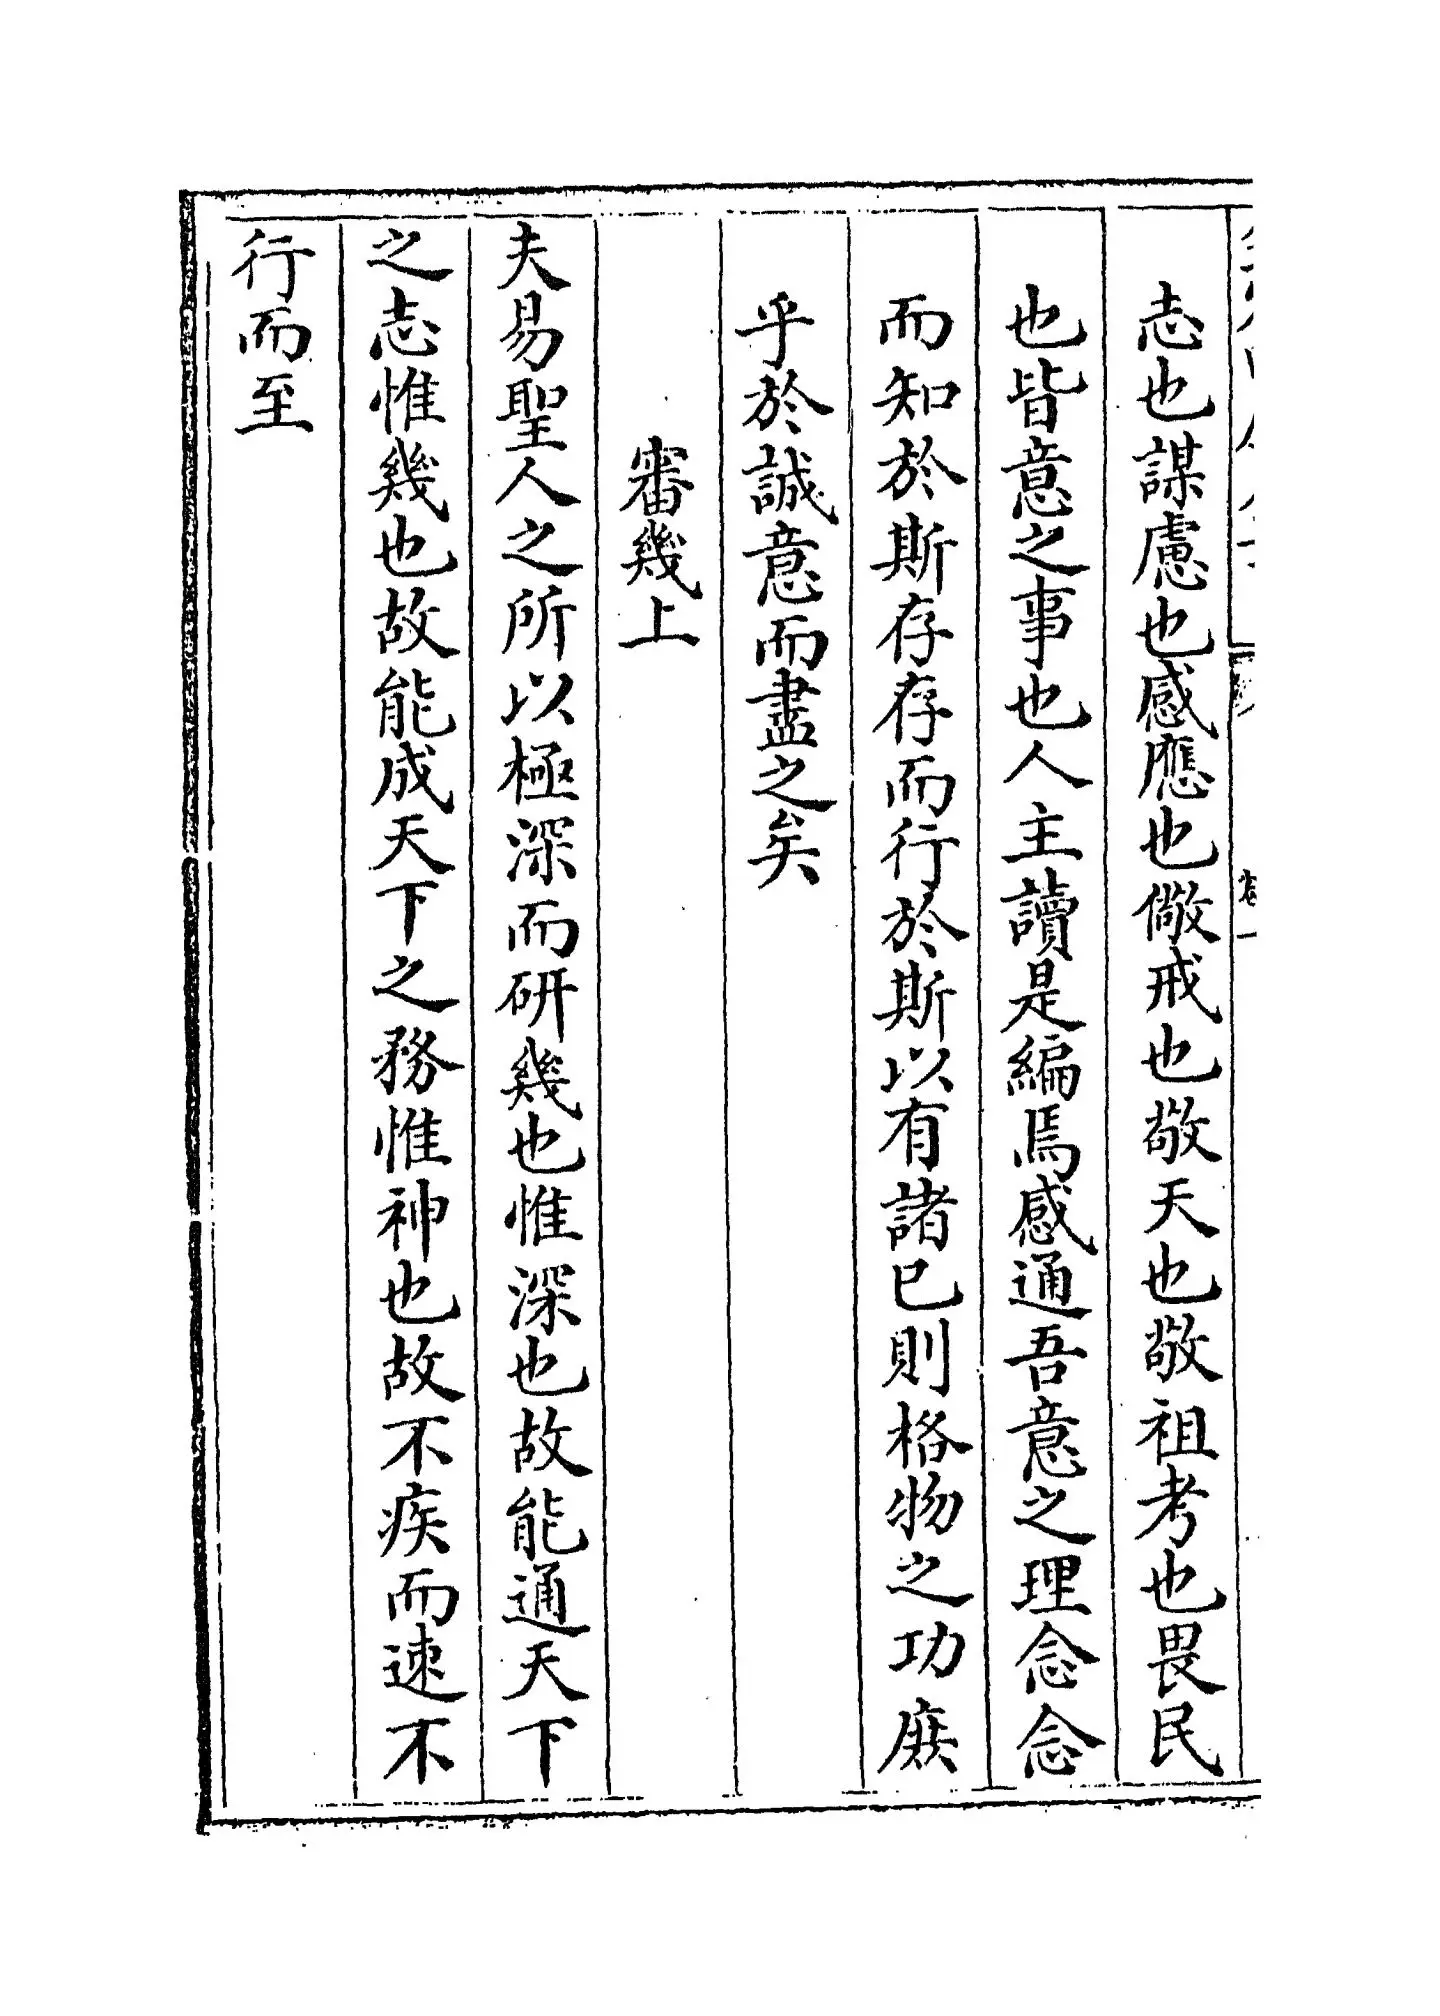 志也謀慮也感應也儆戒也敬天也敬祖考也畏民
也皆意之事也人主讀是編焉感通吾意之理念念
而知於斯存存而行於斯以有諸已則格物之功庶
乎於誠意而盡之矣
審幾上
夫易聖人之所以極深而研幾也惟深也故能通天下
之志惟幾也故能成天下之務惟神也故不疾而速不
行而至